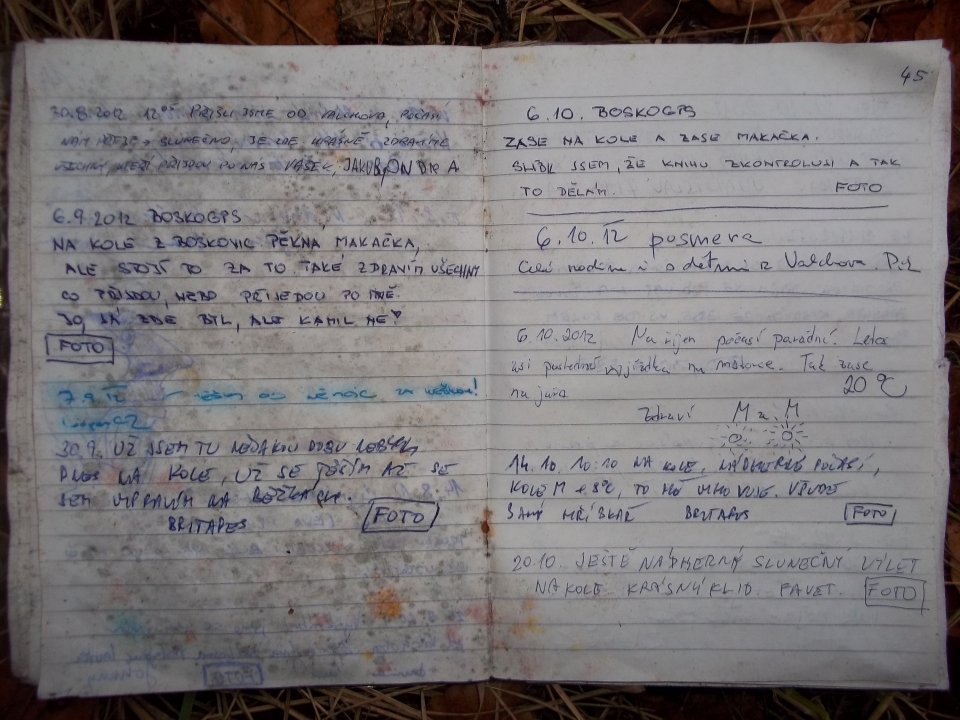 30.8.2012 12⁰⁵ PŘIŠLI JSME OD VALCHOVA, POČASÍ
NÁM SLUNEČNO, JE ZDE KRÁSNĚ ZDRAVÍME
VŠECHNY KTEŘÍ PŘIJDOU PO NÁS VAŠEK, JAKUB, ONDRA
6.9.2012 BOSKOGPS
NA KOLE Z BOSKOVIC PĚKNÁ MAKAČKA,
ALE STOJÍ TO ZA TO TAKÉ ZDRAVÍM VŠECHNY
CO PŘIJDOU, NEBO PŘIJEDOU PO MNĚ.
JO, JÁ ZDE BYL, ALE KAMIL NE!
FOTO
7.9.12
30.9. UŽ JSEM TU NĚJAKOU DOBU NEBYL
DNES NA KOLE, UŽ SE TĚŠÍM AŽ SE
SEM VYPRAVÍM NA BĚŽKÁCH.
BRITAPES FOTO
FOTO
45
6.10. BOSKOGPS
ZASE NA KOLE A ZASE MAKAČKA.
SLÍBIL JSEM, ŽE KNIHU ZKONTROLUJI A TAK
TO DĚLÁM. FOTO
6.10.12 pusmeva
Celá rodina i s dětmi z Valchova.
6.10.2012 Na říjen počasí parádní. Letos
asi poslední vyjížďka na motorce. Tak zase
na jaře 20 °C
Zdraví M a M
14.10. 10:10 NA KOLE, NÁDHERNÉ POČASÍ,
KOLEM + 8°C, TO MĚ VYHOVUJE. VŠUDE
SAMÝ HŘÍBKAŘ BRITAPES FOTO
20.10. JEŠTĚ NÁDHERNÝ SLUNEČNÝ VÝLET
NA KOLE KRÁSNÝ KLID PAVET. FOTO